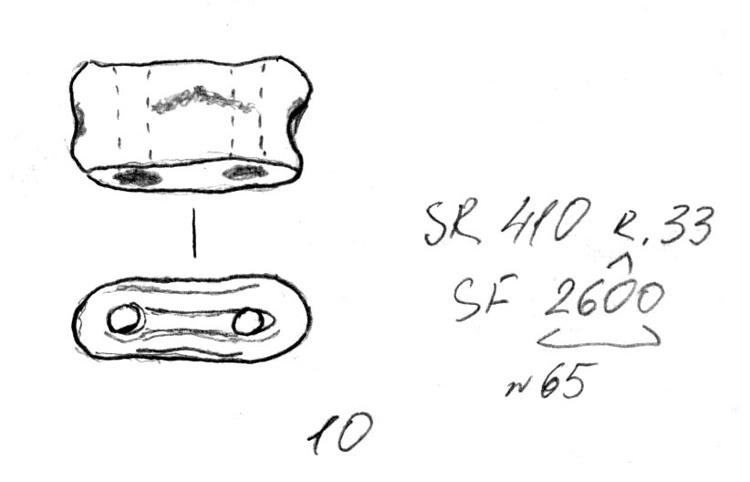 SR 410 R.33
SF 2600
N65
10